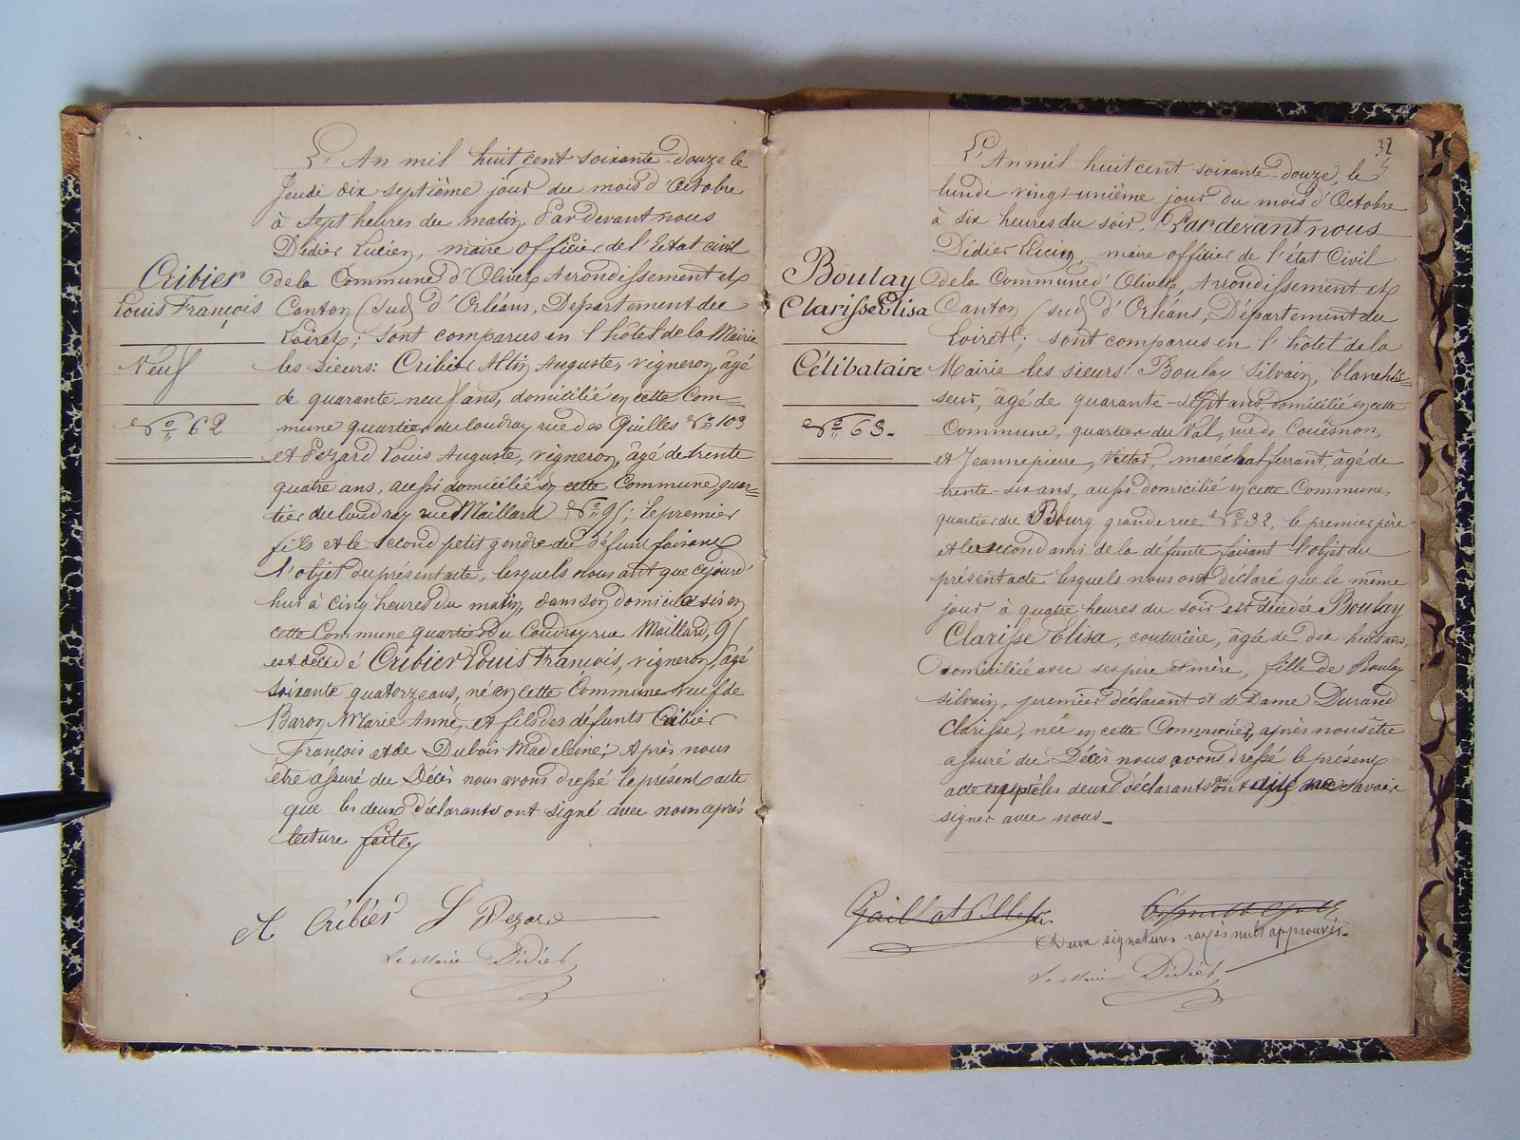 Cribier
Louis François
Veuf
No 62
L'An mil huit cent soixante-douze le
Jeudi dix septième jour du mois d'Octobre
à sept heures du matin, Par devant nous
Didier Lucien, maire officier de l'Etat civil
de la Commune d'Olivet Arrondissement et
Canton (sud) d'Orléans, Département du
Loiret; sont comparus en l'hôtel de la Mairie
les sieurs: Cribier Auguste, vigneron, âgé
de quarante-neuf ans, domicilié en cette Com=
mune quartier du Coudray rue des Quilles No 103
et Pezard Louis Auguste, vigneron, âgé de trente
quatre ans, aussi domicilié en cette Commune quar=
tier du Coudray rue Maillard No 95; le premier
fils et le second petit gendre du défunt faisant
l'objet du présent acte, lesquels nous ont que cejourd'
hui à cinq heures du matin, dans son domicile sis en
cette Commune quartier du Coudray rue Maillard, 95
est décédé Cribier Louis François, vigneron, âgé
soixante quatorze ans, né en cette Commune veuf de
Baron Marie Anne, et fils des défunts Cribier
François et de Dubois Madeleine; Après nous
être assuré du Décès nous avons dressé le présent acte
que les deux déclarants ont signé avec nous après
lecture faite,
A Cribier L Pezard
Le Maire Didier L
32
Boulay
Clarisse Elisa
Célibataire
No 63.
L'An mil huit cent soixante-douze, le
lundi vingt-unième jour du mois d'Octobre
à six heures du soir, Par devant nous
Didier Lucien, maire officier de l'état Civil
de la Commune d'Olivet, Arrondissement et
Canton (sud) d'Orléans, Département du
Loiret; sont comparus en l'hôtel de la
Mairie les sieurs: Boulay Silvain, blanchis=
seur, âgé de quarante-sept ans, domicilié en cette
Commune, quartier du Val, rue de Couësnon,
et Jeannepierre, Victor, marechal ferrant, âgé de
trente-six ans, aussi domicilié en cette Commune,
quartier du Bourg grande rue No 32, le premier père
et le second ami de la défunte faisant l'objet du
présent acte lesquels nous ont déclaré que le même
jour à quatre heures du soir est décédée Boulay
Clarisse Elisa, couturière, âgée de dix huit ans,
domiciliée avec ses père et mère, fille de Boulay
Silvain, premier déclarant et de Dame Durand
Clarisse, née en cette Commune, après nous être
assuré du Décès nous avons dressé le présent
acte les deux déclarants ont dit ne savoir
signer avec nous.
Deux signatures rayées nulles approuvés.
Le Maire Didier L